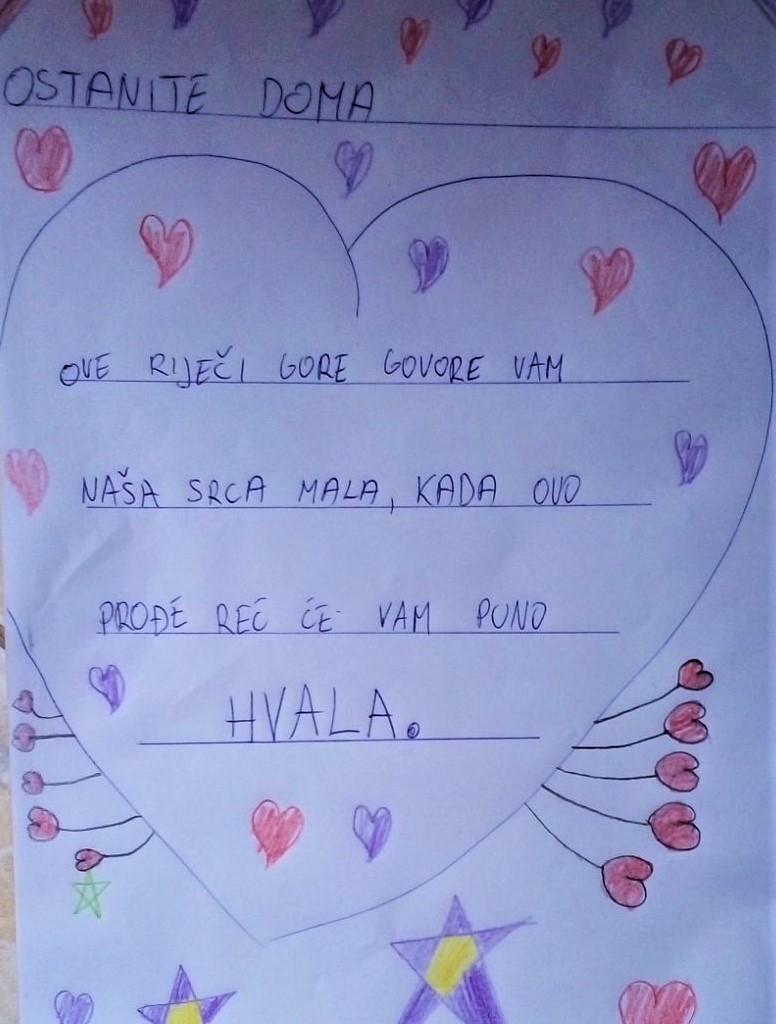 OSTANITE DOMA
OVE RIJEČI GORE GOVORE VAM
NAŠA SRCA MALA, KADA OVO
PROĐE REĆ ĆE VAM PUNO
HVALA.